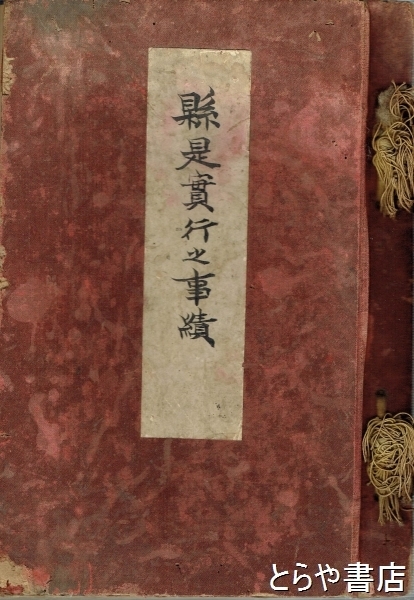 縣是實行之事績
とらや書店